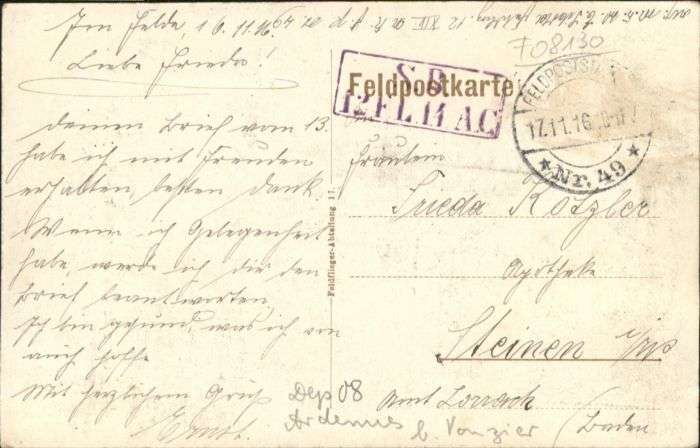 Im Felde, 16.11.16
Liebe Frieda!
deinen Brief vom 13.
habe ich mit Freuden
erhalten, besten Dank.
Wenn ich Gelegenheit
habe, werde ich dir den
Brief beantworten,
Ich bin gesund, was ich von
auch hoffe
Mit herzlichem Gruß
Ernst.
Feldpostkarte
S.B.
12 FL 14 A.C
708130
FELDPOSTST
17.11.16
★ Nr. 49 ★
Feldflieger-Abteilung 17.
Fräulein
Frieda Kotzler
Apotheke
Steinen
Amt Lörrach
(Baden
Dep 08
Ardennes
b. Vouzier